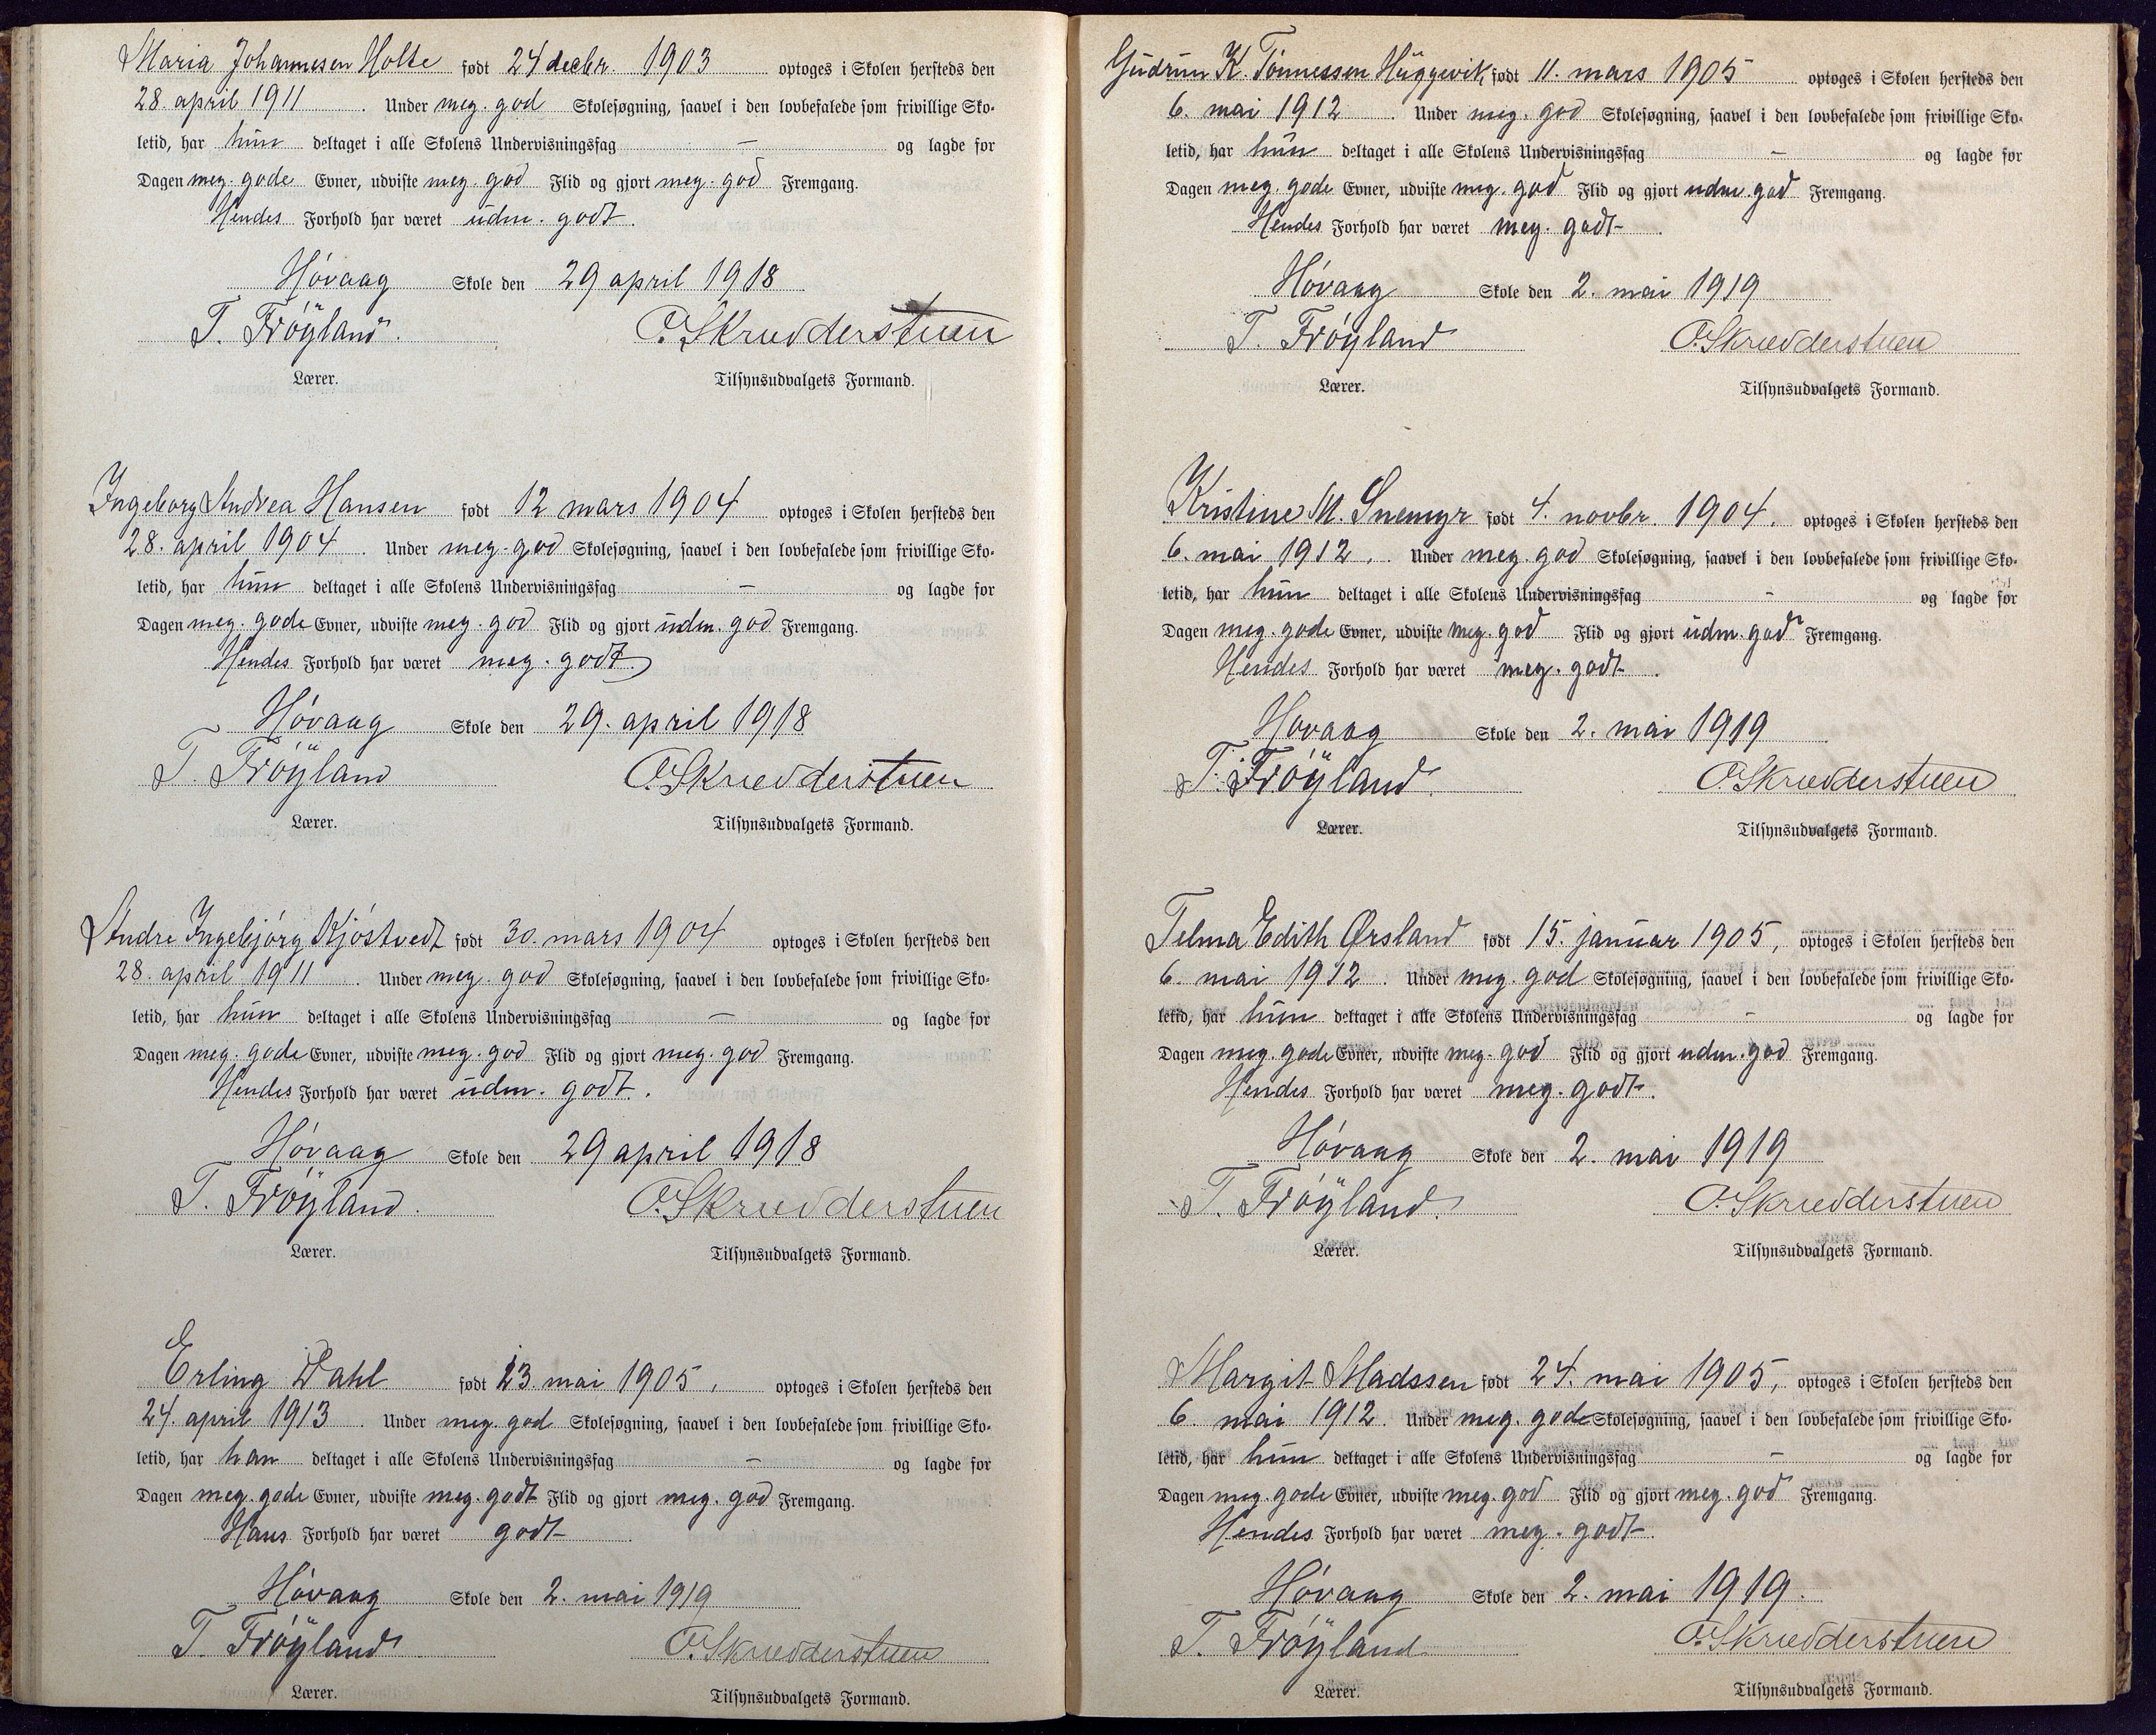 Maria Johannesen Holte født 24 decbr. 1903 optoges i Skolen hersteds den
28. april 1911. Under meg. god Skolesøgning, saavel i den lovbefalede som frivillige Sko-
letid, har hun deltaget i alle Skolens Undervisningsfag — og lagde for
Dagen meg. gode Evner, udviste meg. god Flid og gjort meg. god Fremgang.
Hendes Forhold har været udm. godt.
Høvaag Skole den 29 april 1918
T. Frøyland. O. Skredderstuen
Lærer. Tilsynsudvalgets Formand.
Ingeborg Andrea Hansen født 12 mars 1904 optoges i Skolen hersteds den
28. april 1904. Under meg. god Skolesøgning, saavel i den lovbefalede som frivillige Sko-
letid, har hun deltaget i alle Skolens Undervisningsfag — og lagde for
Dagen meg. gode Evner, udviste meg. god Flid og gjort udm. god Fremgang.
Hendes Forhold har været meg. godt.
Høvaag Skole den 29. april 1918
T. Frøyland O. Skredderstuen
Lærer. Tilsynsudvalgets Formand.
Andre Ingebjørg Kjøstvedt født 30. mars 1904 optoges i Skolen hersteds den
28. april 1911. Under meg. god Skolesøgning, saavel i den lovbefalede som frivillige Sko-
letid, har hun deltaget i alle Skolens Undervisningsfag — og lagde for
Dagen meg. gode Evner, udviste meg. god Flid og gjort meg. god Fremgang.
Hendes Forhold har været udm. godt.
Høvaag Skole den 29 april 1918
T. Frøyland. O. Skredderstuen
Lærer. Tilsynsudvalgets Formand.
Erling Dahl født 23 mai 1905, optoges i Skolen hersteds den
24. april 1913. Under meg. god Skolesøgning, saavel i den lovbefalede som frivillige Sko-
letid, har han deltaget i alle Skolens Undervisningsfag — og lagde for
Dagen meg. gode Evner, udviste meg. godt Flid og gjort meg. god Fremgang.
Hans Forhold har været godt.
Høvaag Skole den 2. mai 1919
T. Frøyland O. Skredderstuen
Lærer. Tilsynsudvalgets Formand.
Gudrun K. Tønnessen Huggevik født 11. mars 1905 optoges i Skolen hersteds den
6. mai 1912. Under meg. god Skolesøgning, saavel i den lovbefalede som frivillige Sko-
letid, har hun deltaget i alle Skolens Undervisningsfag — og lagde for
Dagen meg. gode Evner, udviste meg. god Flid og gjort udm. god Fremgang.
Hendes Forhold har været meg. godt.
Høvaag Skole den 2. mai 1919
T. Frøyland O. Skredderstuen
Lærer. Tilsynsudvalgets Formand.
Kristine M. Snemyr født 4. novbr. 1904. optoges i Skolen hersteds den
6. mai 1912. Under meg. god Skolesøgning, saavel i den lovbefalede som frivillige Sko-
letid, har hun deltaget i alle Skolens Undervisningsfag — og lagde for
Dagen meg. gode Evner, udviste meg. god Flid og gjort udm. god Fremgang.
Hendes Forhold har været meg. godt.
Høvaag Skole den 2. mai 1919
T. Frøyland. O. Skredderstuen
Lærer. Tilsynsudvalgets Formand.
Telma Edith Ørsland født 15. januar 1905, optoges i Skolen hersteds den
6. mai 1912. Under meg. god Skolesøgning, saavel i den lovbefalede som frivillige Sko-
letid, har hun deltaget i alle Skolens Undervisningsfag — og lagde for
Dagen meg. gode Evner, udviste meg. god Flid og gjort udm. god Fremgang.
Hendes Forhold har været meg. godt.
Høvaag Skole den 2. mai 1919
T. Frøyland. O. Skredderstuen
Lærer. Tilsynsudvalgets Formand.
Margit Madssen født 24. mai 1905, optoges i Skolen hersteds den
6. mai 1912. Under meg. gode Skolesøgning, saavel i den lovbefalede som frivillige Sko-
letid, har hun deltaget i alle Skolens Undervisningsfag — og lagde for
Dagen meg. gode Evner, udviste meg. god Flid og gjort meg. god Fremgang.
Hendes Forhold har været meg. godt.
Høvaag Skole den 2. mai 1919.
T. Frøyland O. Skredderstuen
Lærer. Tilsynsudvalgets Formand.